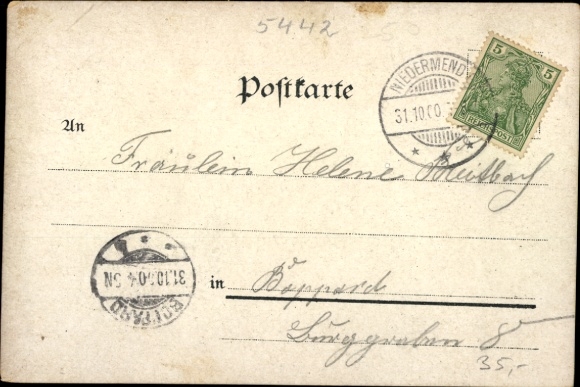 5442
NIEDERMENDIG
31.10.00.
5 5
REICHSPOST
Postkarte
An
Fräulein Helene
31.10.00.4-5N
BOPPARD
in Boppard
Burggraben 8
35,-